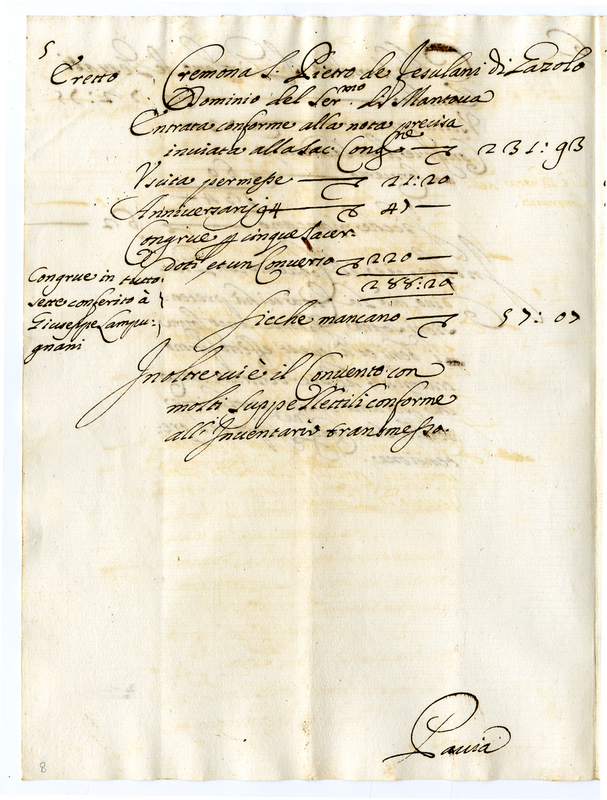 5
Eretto Cremona S. Pietro de Jesulani di Lazolo
Dominio del Ser.mo di Mantova
Entrata conforme alla nota precisa
inviata alla Sac. Cong.ne — 231: 93
Uscita permesse — 21: 20
Anniversarij 94 — 47 —
Congrue p cinque Sacer:
doti et un Converso 220 —
288: 20
Congrue in tutto
sette conferito à
Giuseppe Lampu:
gnani
Sicche mancano — 57: 07
Inoltre vi è il Convento con
molti suppellettili conforme
all' Inventario transmesso.
Pavia
8